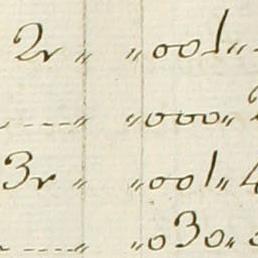 2r " "001"
---" "000"
3r " "001"4
---" "030"